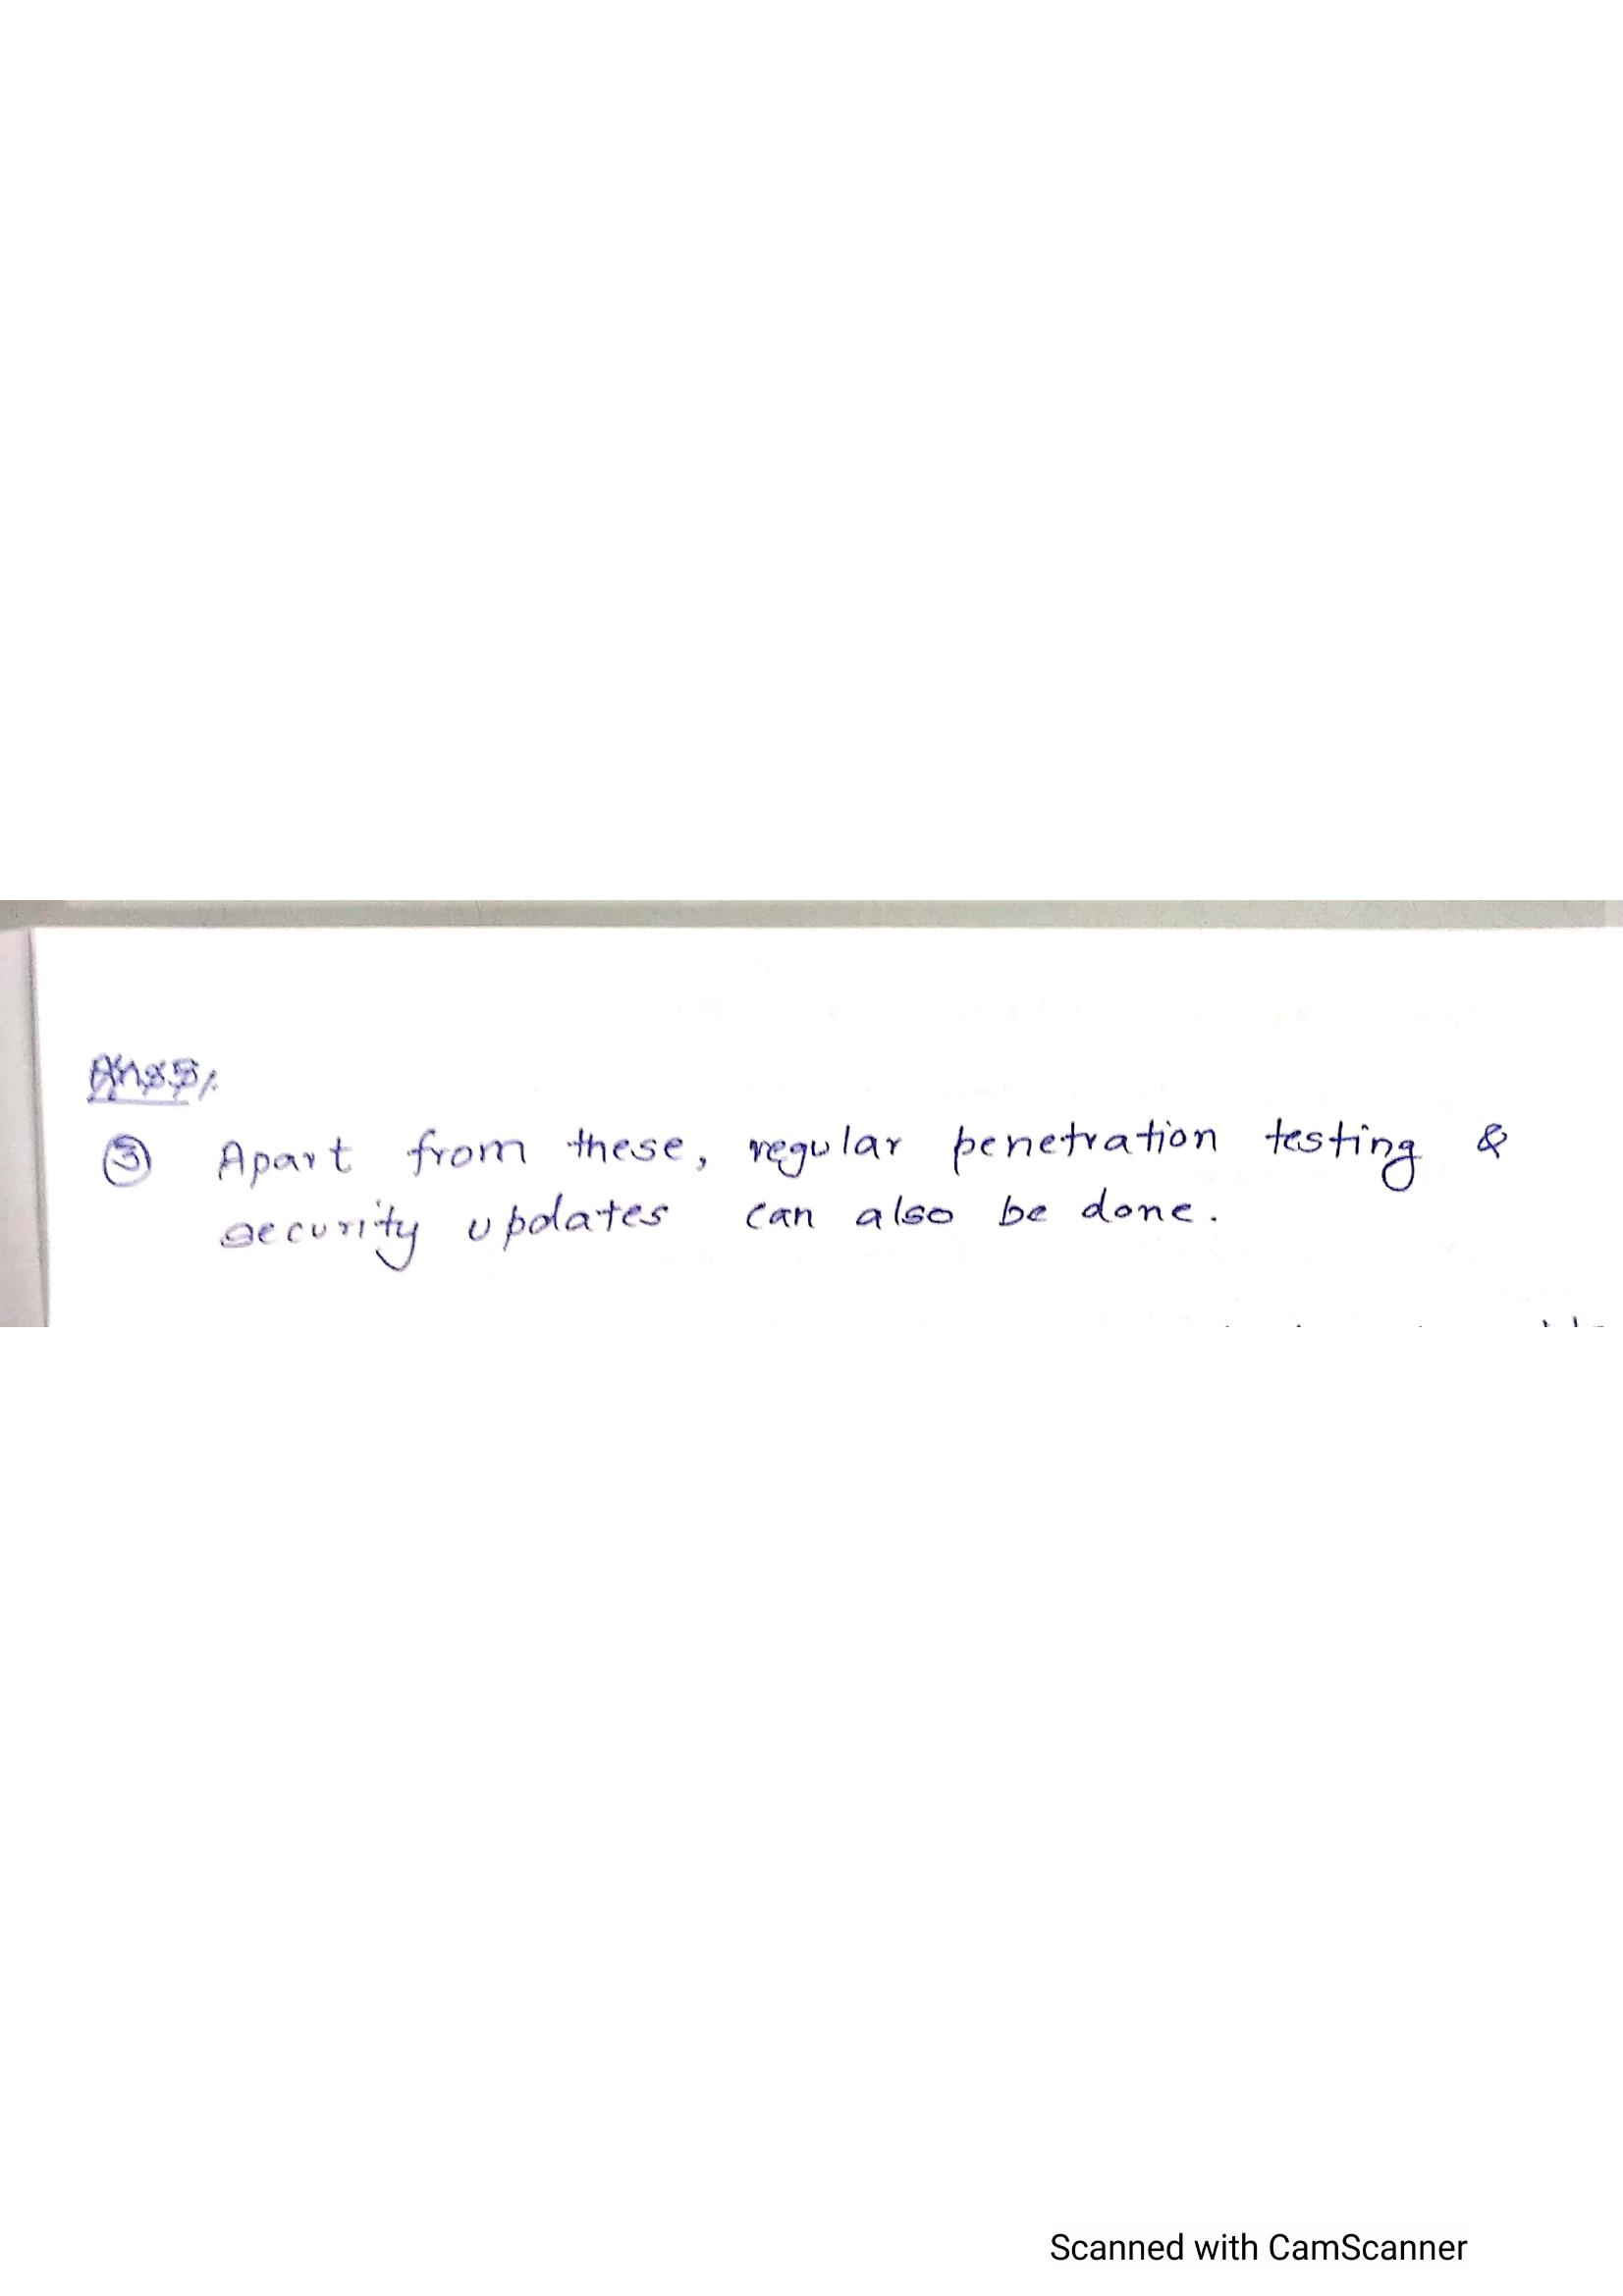 Ans5.
③ Apart from these, regular penetration testing &
security updates can also be done.
Scanned with CamScanner